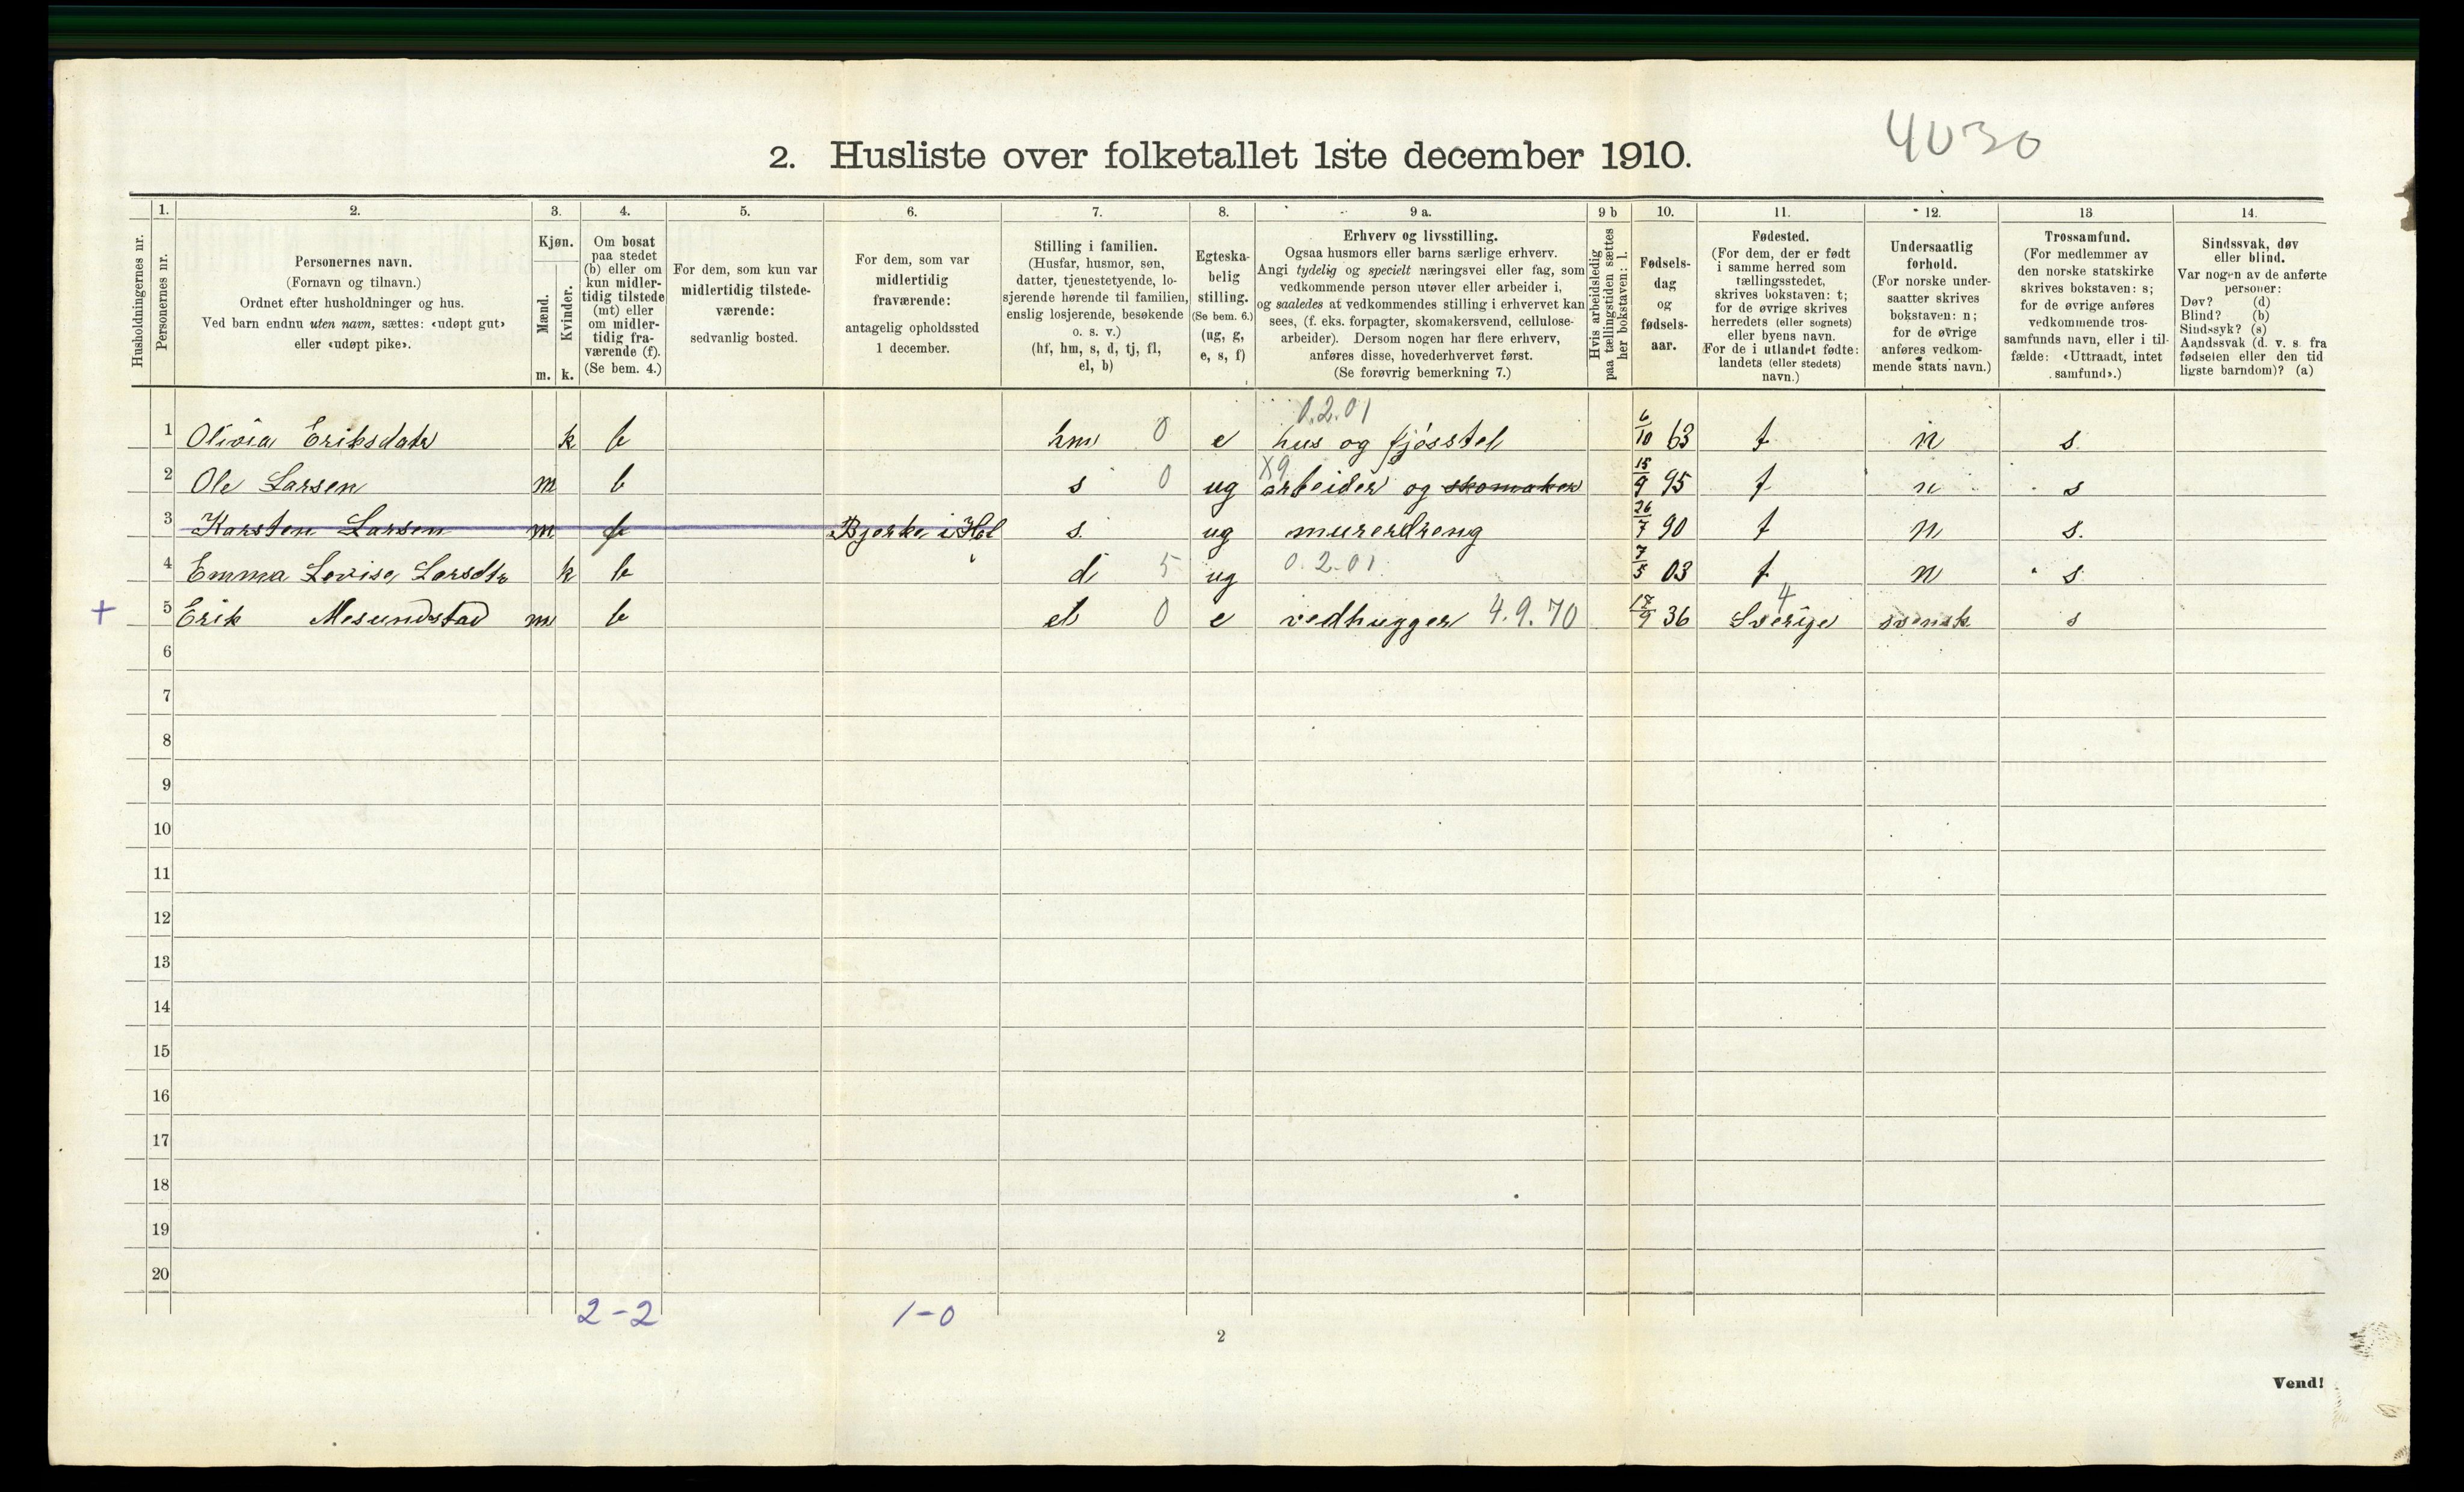 4030
2. Husliste over folketallet 1ste december 1910.
Husholdningernes nr.
1.
Personernes nr.
2.
Personernes navn.
(Fornavn og tilnavn.)
Ordnet efter husholdninger og hus.
Ved barn endnu uten navn, sættes: «udøpt gut»
eller «udøpt pike».
3.
Kjøn.
Mænd.
Kvinder.
m. k.
4.
Om bosat
paa stedet
(b) eller om
kun midler-
tidig tilstede
(mt) eller
om midler-
tidig fra-
værende (f).
(Se bem. 4.)
5.
For dem, som kun var
midlertidig tilstede-
værende:
sedvanlig bosted.
6.
For dem, som var
midlertidig
fraværende:
antagelig opholdssted
1 december.
7.
Stilling i familien.
(Husfar, husmor, søn,
datter, tjenestetyende, lo-
sjerende hørende til familien,
enslig losjerende, besøkende
o. s. v.)
(hf, hm, s, d, tj, fl,
el, b)
8.
Egteska-
belig
stilling.
(Se bem. 6.)
(ug, g,
e, s, f)
9 a.
Erhverv og livsstilling.
Ogsaa husmors eller barns særlige erhverv.
Angi tydelig og specielt næringsvei eller fag, som
vedkommende person utøver eller arbeider i,
og saaledes at vedkommendes stilling i erhvervet kan
sees, (f. eks. forpagter, skomakersvend, cellulose-
arbeider). Dersom nogen har flere erhverv,
anføres disse, hovederhvervet først.
(Se forøvrig bemerkning 7.)
9 b
Hvis arbeidsledig
paa tællingstiden sættes
her bokstaven: l.
10.
Fødsels-
dag
og
fødsels-
aar.
11.
Fødested.
(For dem, der er født
i samme herred som
tællingsstedet,
skrives bokstaven: t;
for de øvrige skrives
herredets (eller sognets)
eller byens navn.
For de i utlandet fødte:
landets (eller stedets)
navn.)
12.
Undersaatlig
forhold.
(For norske under-
saatter skrives
bokstaven: n;
for de øvrige
anføres vedkom-
mende stats navn.)
13
Trossamfund.
(For medlemmer av
den norske statskirke
skrives bokstaven: s;
for de øvrige anføres
vedkommende tros-
samfunds navn, eller i til-
fælde: «Uttraadt, intet
samfund».)
14.
Sindssvak, døv
eller blind.
Var nogen av de anførte
personer:
Døv? (d)
Blind? (b)
Sindssyk? (s)
Aandssvak (d. v. s. fra
fødselen eller den tid
ligste barndom)? (a)
0.2.01
1 Olivia Eriksdatr k b hm 0 e hus og fjösstel 6/10 63 t n s.
X9
2 Ole Larsen m b s 0 ug arbeider og skomaker 15/9 95 t n s
3 Karsten Larsen m f Bjerke i Hol s. ug murerdreng 26/7 90 t n s.
4 Emma Lovise Larsdtr k b d 5 ug 0.2.01. 7/5 03 t n s
4
+ 5 Erik Mesundstad m b el 0 e vedhugger 4.9.70 17/9 36 Sverige svensk s
6
7
8
9
10
11
12
13
14
15
16
17
18
19
20
2-2 1-0
2
Vend!